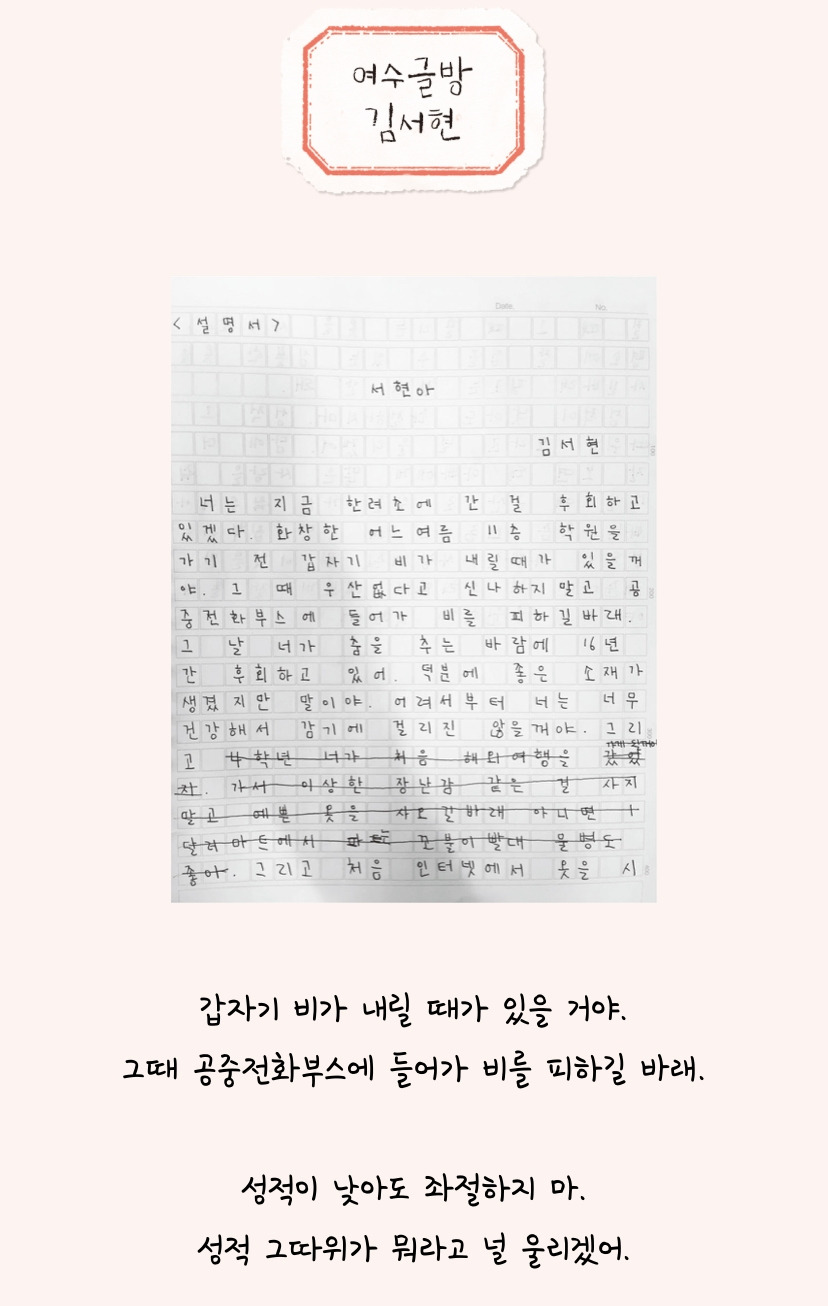 여수글방
김서현
Date. No.
<설명서>
서현아
김서현
너는 지금 한려초에 간 걸 후회하고
있겠다. 화창한 어느여름 11층 학원을
가기 전 갑자기 비가 내릴때가 있을꺼
야. 그 때 우산없다고 신나하지말고 공
중전화부스에 들어가 비를 피하길바래.
그 날 너가 춤을 추는 바람에 16년
간 후회하고 있어. 덕분에 좋은 소재가
생겼지만 말이야. 어려서부터 너는 너무
건강해서 감기에 걸리진 않을꺼야. 그리
고 4학년 너가 처음 해외여행을
자. 가서 이상한 장난감 같은 걸 사지
말고 예쁜 옷을 사오길바래 아니면
달러마트에서 파는 꼬불이빨대 물병도
좋아. 그리고 처음 인터넷에서 옷을 시
갑자기 비가 내릴 때가 있을 거야.
그때 공중전화부스에 들어가 비를 피하길 바래.
성적이 낮아도 좌절하지 마.
성적 그따위가 뭐라고 널 울리겠어.